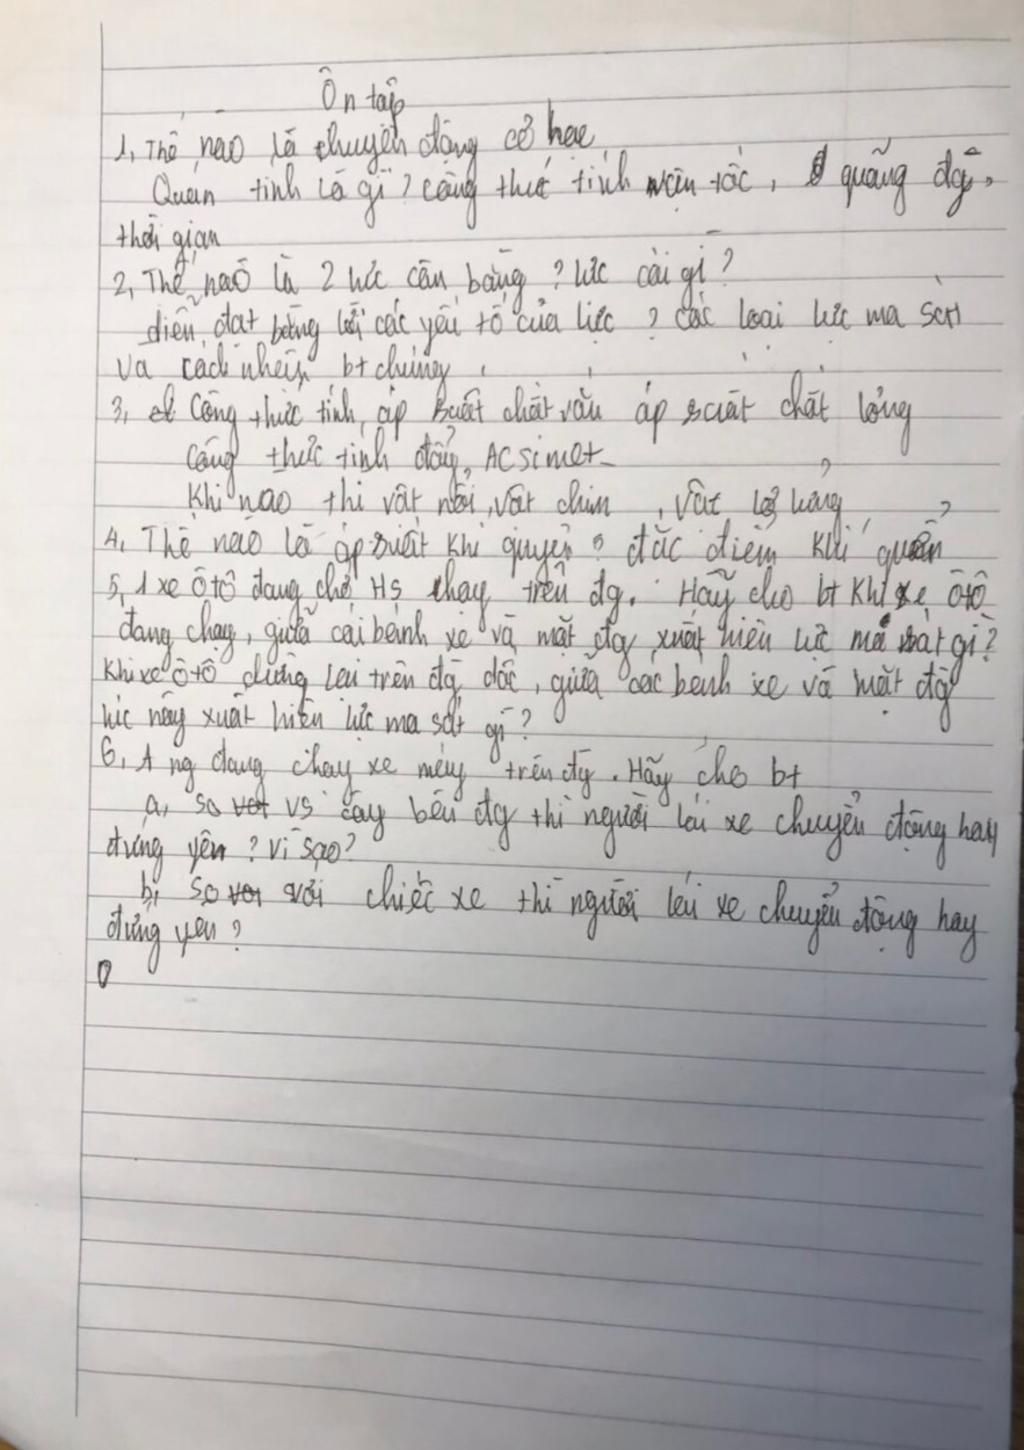 Ôn tập
1, Thế nào là chuyển động cơ học
Quán tính là gì? Công thức tính vận tốc, quãng đg,
thời gian
2, Thế nào là 2 lực cân bằng? lực cái gì?
diễn đạt bằng lời các yếu tố của lực? các loại lực ma sát
và cách nhận bt chúng
3, Công thức tính áp suất chất rắn áp suất chất lỏng
Công thức tính đẩy ACsimet
Khi nào thì vật nổi, vật chìm, vật lơ lửng?
4, Thế nào là áp suất khí quyển? đặc điểm khí quển?
5, 1 xe ôtô đang chở Hs chạy trên đg. Hãy cho bt khi xe ôtô
đang chạy, giữa cái bánh xe và mặt đg xuất hiện lực ma sát gì?
Khi xe ôtô dừng lại trên đg dốc, giữa các bánh xe và mặt đg
lúc này xuất hiện lực ma sát gì?
6, 1 ng đang chạy xe máy trên đg. Hãy cho bt
a, so vs cây bên đg thì người lái xe chuyển động hay
đứng yên? Vì sao?
b, so với chiếc xe thì người lái xe chuyển động hay
đứng yên?